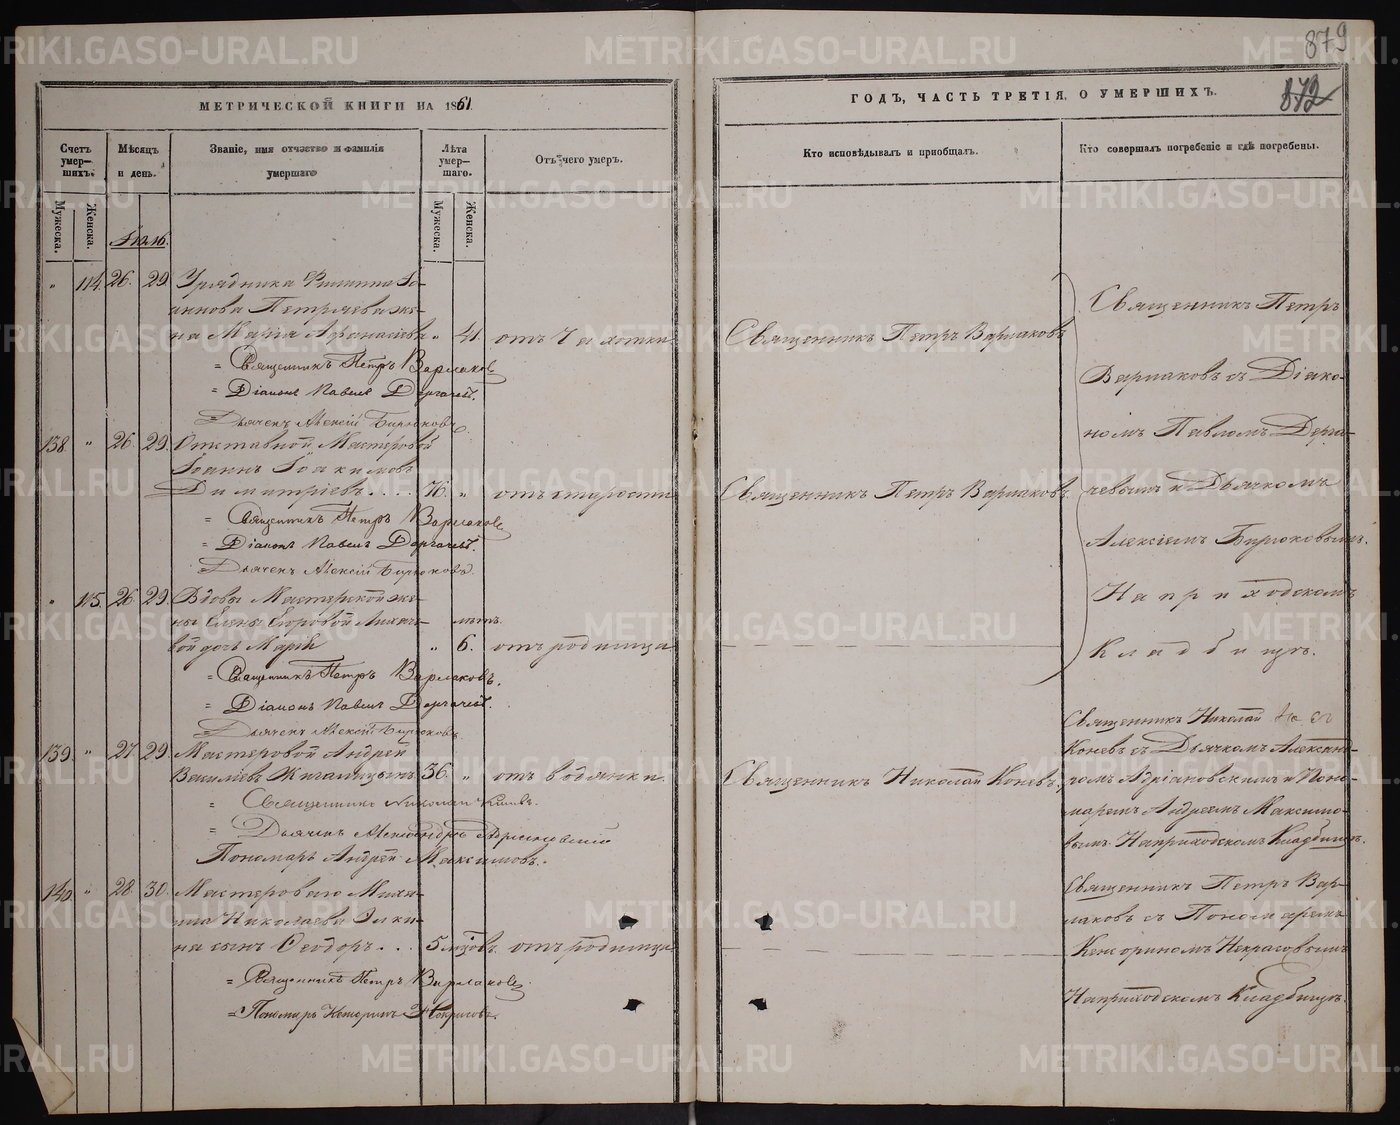 879
872
МЕТРИЧЕСКОЙ КНИГИ НА 1861
ГОДЪ, ЧАСТЬ ТРЕТІЯ, О УМЕРШИХЪ.
Счетъ умер-шихъ.
Мѣсяцъ и день.
Званіе, имя отчество и фамилія умершаго
Лѣта умер-шаго.
Отъ чего умеръ.
Кто исповѣдывалъ и приобщалъ.
Кто совершалъ погребеніе и гдѣ погребены.
Мужеска.
Женска.
Мужеска.
Женска.
" 114. 26. 29. Урядника Филиппа Іо-
аннова Петряева же-
на Марія Афанасіева " 41. отъ Чахотки
Священникъ Петръ Варлаковъ
= Священникъ Петръ Варлаковъ
= Діаконъ Павелъ Дергачевъ.
= Дьячекъ Алексій Бирюковъ
138. " 26. 29. Отставной Мастеровой
Іоаннъ Іоакимовъ
Димитріевъ.... " отъ старости
Священникъ Петръ Варлаковъ
= Священникъ Петръ Варлаковъ
= Діаконъ Павелъ Дергачевъ.
= Дьячекъ Алексій Бирюковъ.
" 115. 26. 29. Вдовы Мастерской же-
ны Елены
вой дочь Марія " 6. отъ родимца
= Священникъ Петръ Варлаковъ.
= Діаконъ Павелъ Дергачевъ.
= Дьячекъ Алексій Бирюковъ
Священникъ Петръ
Варлаковъ съ Діако-
номъ Павломъ Дерга-
чевымъ и Дьячкомъ
Алексіемъ Бирюковымъ.
На приходскомъ
Кладбищѣ.
139. " 27. 29. Мастеровой Андрей
Василіевъ 36. " отъ водянки.
Священникъ Николай Коневъ.
= Священникъ Николай Коневъ.
= Дьячекъ Александръ Адріановскій
Пономарь Андрей Максимовъ.
Священникъ Николай
Коневъ съ Дьячкомъ Александ-
ромъ Адріановскимъ и Поно-
маремъ Андреемъ Максимо-
вымъ. На приходскомъ Кладбищѣ.
140. " 28. 30. Мастероваго
Николаева
на сынъ Ѳеодоръ... 5 отъ родимца
= Священникъ Петръ Варлаковъ.
= Пономарь Некрасовъ.
Священникъ Петръ Вар-
лаковъ съ Пономаремъ
Некрасовымъ
На приходскомъ Кладбищѣ.
METRIKI.GASO-URAL.RU